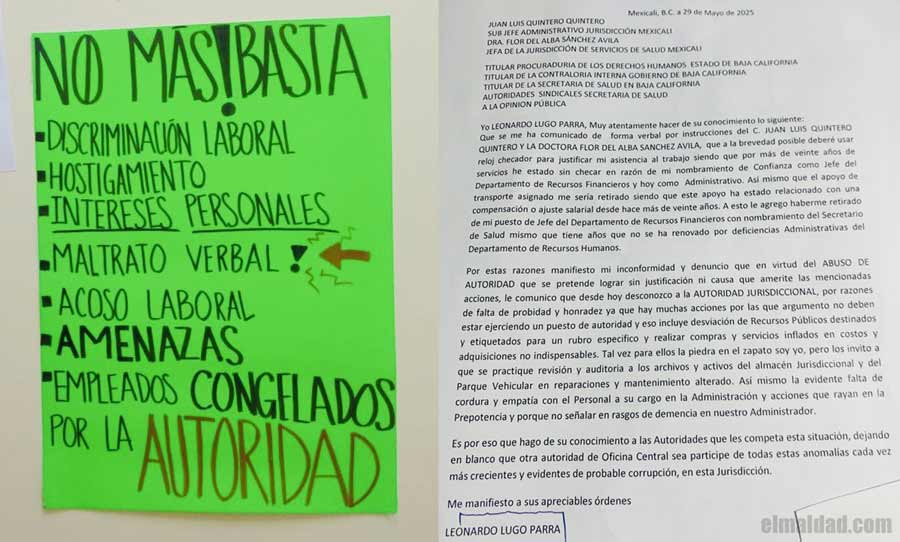 NO MÁS! BASTA
DISCRIMINACIÓN LABORAL
HOSTIGAMIENTO
INTERESES PERSONALES
MALTRATO VERBAL !
ACOSO LABORAL
AMENAZAS
EMPLEADOS CONGELADOS
POR LA AUTORIDAD
Mexicali, B.C. a 29 de Mayo de 2025
JUAN LUIS QUINTERO QUINTERO
SUB JEFE ADMINISTRATIVO JURISDICCIÓN MEXICALI
DRA. FLOR DEL ALBA SÁNCHEZ AVILA
JEFA DE LA JURISDICCIÓN DE SERVICIOS DE SALUD MEXICALI
TITULAR PROCURADURIA DE LOS DERECHOS HUMANOS ESTADO DE BAJA CALIFORNIA
TITULAR DE LA CONTRALORIA INTERNA GOBIERNO DE BAJA CALIFORNIA
TITULAR DE LA SECRETARIA DE SALUD EN BAJA CALIFORNIA
AUTORIDADES SINDICALES SECRETARIA DE SALUD
A LA OPINION PÚBLICA
Yo LEONARDO LUGO PARRA, Muy atentamente hacer de su conocimiento lo siguiente:
Que se me ha comunicado de forma verbal por instrucciones del C. JUAN LUIS QUINTERO
QUINTERO Y LA DOCTORA FLOR DEL ALBA SANCHEZ AVILA, que a la brevedad posible deberé usar
reloj checador para justificar mi asistencia al trabajo siendo que por más de veinte años de
servicios he estado sin checar en razón de mi nombramiento de Confianza como Jefe del
Departamento de Recursos Financieros y hoy como Administrativo. Así mismo que el apoyo de
transporte asignado me sería retirado siendo que este apoyo ha estado relacionado con una
compensación o ajuste salarial desde hace más de veinte años. A esto le agrego haberme retirado
de mi puesto de Jefe del Departamento de Recursos Financieros con nombramiento del Secretario
de Salud mismo que tiene años que no se ha renovado por deficiencias Administrativas del
Departamento de Recursos Humanos.
Por estas razones manifiesto mi inconformidad y denuncio que en virtud del ABUSO DE
AUTORIDAD que se pretende lograr sin justificación ni causa que amerite las mencionadas
acciones, le comunico que desde hoy desconozco a la AUTORIDAD JURISDICCIONAL, por razones
de falta de probidad y honradez ya que hay muchas acciones por las que argumento no deben
estar ejerciendo un puesto de autoridad y eso incluye desviación de Recursos Públicos destinados
y etiquetados para un rubro especifico y realizar compras y servicios inflados en costos y
adquisiciones no indispensables. Tal vez para ellos la piedra en el zapato soy yo, pero los invito a
que se practique revisión y auditoria a los archivos y activos del almacén Jurisdiccional y del
Parque Vehicular en reparaciones y mantenimiento alterado. Así mismo la evidente falta de
cordura y empatía con el Personal a su cargo en la Administración y acciones que rayan en la
Prepotencia y porque no señalar en rasgos de demencia en nuestro Administrador.
Es por eso que hago de su conocimiento a las Autoridades que les competa esta situación, dejando
en blanco que otra autoridad de Oficina Central sea participe de todas estas anomalías cada vez
más crecientes y evidentes de probable corrupción, en esta Jurisdicción.
Me manifiesto a sus apreciables órdenes
LEONARDO LUGO PARRA
elmaldad.com